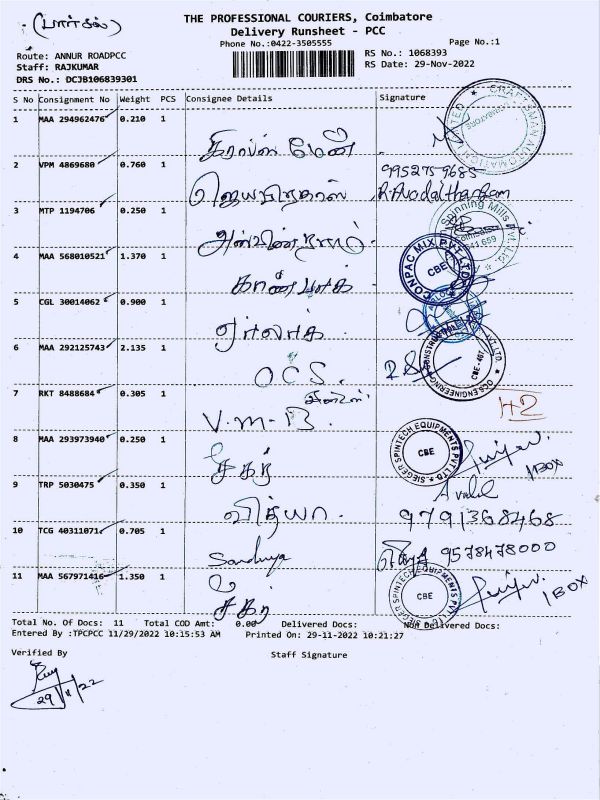 (பார்சல்)
THE PROFESSIONAL COURIERS, Coimbatore
Delivery Runsheet - PCC
Phone No.:0422-3505555
Page No.:1
Route: ANNUR ROADPCC
RS No.: 1068393
Staff: RAJKUMAR
RS Date: 29-Nov-2022
DRS No.: DCJB106839301
S No Consignment No Weight PCS Consignee Details Signature
1 MAA 294962476 0.210 1
CRAFTSMAN AUTOMATION LIMITED
2 VPM 4869680 0.760 1
9952759685
3 MTP 1194706 0.250 1
Spinning Mills Pvt. Ltd.
4 MAA 568010521 1.370 1
CONPAC MIX PVT LTD CBE
5 CGL 30014062 0.900 1
6 MAA 292125743 2.135 1
OCS.
OCS ENGINEERING CONSTRUCTION PVT. LTD.
7 RKT 8488684 0.305 1
V.M-B.
42
8 MAA 293973940 0.250 1
சேகர்
SIEGER SPINTECH EQUIPMENTS PVT LTD CBE
1BOX
9 TRP 5030475 0.350 1
வித்யா.
9791368468
10 TCG 40311071 0.705 1
Sandhya
9578478000
11 MAA 567971416 1.350 1
சேகர்
SIEGER SPINTECH EQUIPMENTS PVT LTD CBE
1BOX
Total No. Of Docs: 11 Total COD Amt: 0.00 Delivered Docs: Non Delivered Docs:
Entered By :TPCPCC 11/29/2022 10:15:53 AM Printed On: 29-11-2022 10:21:27
Verified By Staff Signature
29/11/22